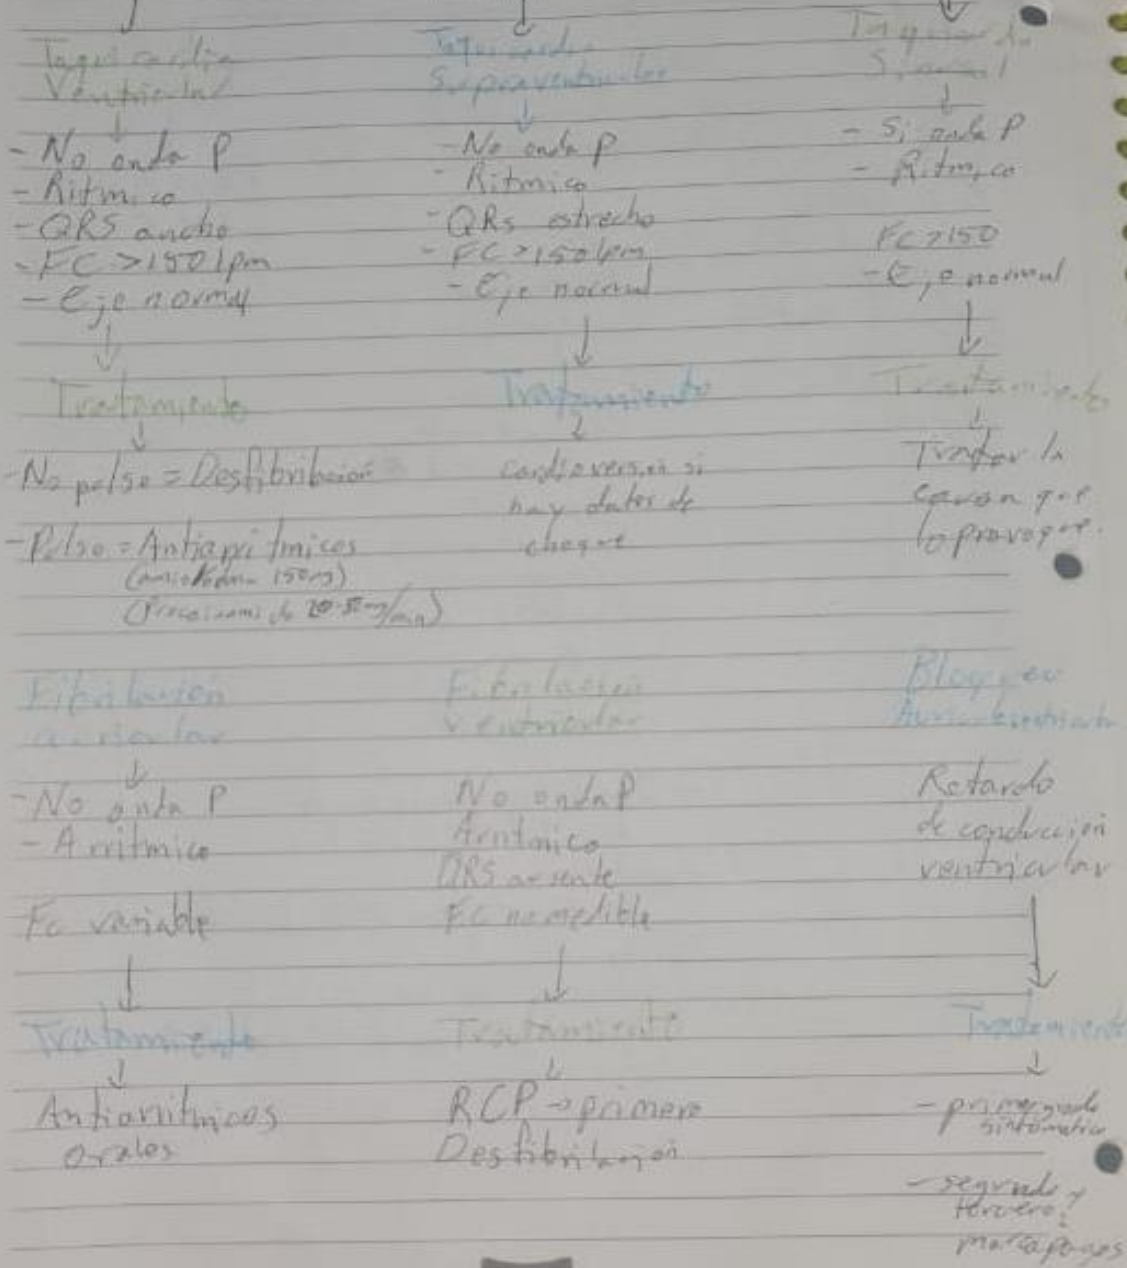 Taquicardia
Ventricular
- No onda P
- Ritmico
- QRS ancho
- FC >150 lpm
- Eje normal
Tratamiento
- No pulso = Desfibrilacion
- Pulso = Antiarritmicos
(amiodarona 150mg)
(Procainamida 20-50mg/min)
Taquicardia
Supraventricular
- No onda P
- Ritmico
- QRs estrecho
- FC >150 lpm
- Eje normal
Tratamiento
cardioversion si
hay datos de
choque
Taquicardia
Sinusal
- Si onda P
- Ritmico
FC >150
- Eje normal
Tratamiento
Tratar la
causa que
lo provoque.
Fibrilación
auricular
- No onda P
- Arritmico
Fc variable
Tratamiento
Antiarritmicos
orales
Fibrilación
ventricular
No onda P
Arritmico
QRS ausente
FC no medible
Tratamiento
RCP → primero
Desfibrilación
Bloqueo
Retardo
de conduccion
ventricular
Tratamiento
- primer grado
- segundo y
tercero:
marcapasos